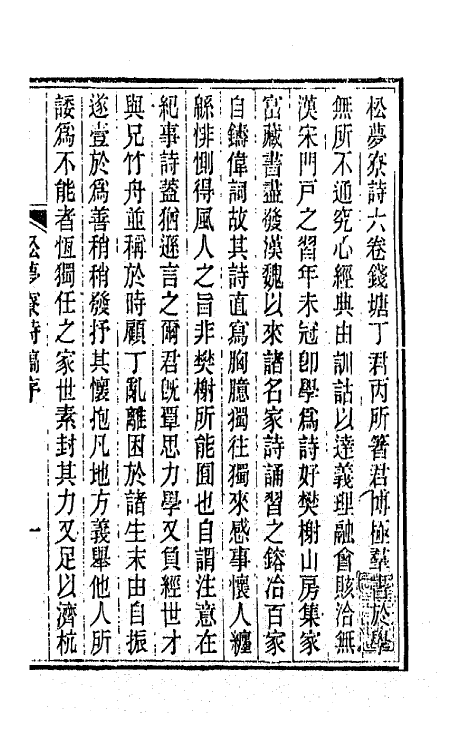 松夢寮詩六卷錢塘丁君丙所箸君博極羣書於學
無所不通究心經典由訓詁以達義理融會賅洽無
漢宋門戶之習年未冠卽學爲詩好樊榭山房集家
富藏書盡發漢魏以來諸名家詩誦習之鎔冶百家
自鑄偉詞故其詩直寫胸臆獨往獨來感事懷人纏
緜悱惻得風人之旨非樊榭所能囿也自謂注意在
紀事詩蓋猶遜言之爾君旣覃思力學又負經世才
與兄竹舟並稱於時顧丁亂離困於諸生末由自振
遂壹於爲善稍稍發抒其懷抱凡地方義舉他人所
諉爲不能者恆獨任之家世素封其力又足以濟杭
松夢寮詩稿序
一